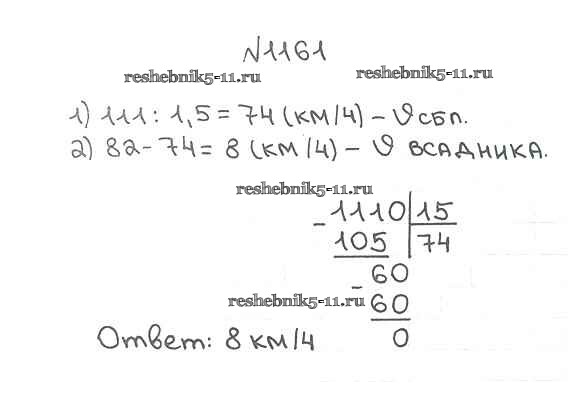 №1161
reshebnik5-11.ru reshebnik5-11.ru
1) 111 : 1,5 = 74 (км/ч) – V сбл.
2) 82 - 74 = 8 (км/ч) – V всадника.
reshebnik5-11.ru
-1110|15
105 |74
-60
reshebnik5-11.ru 60
Ответ: 8 км/ч 0